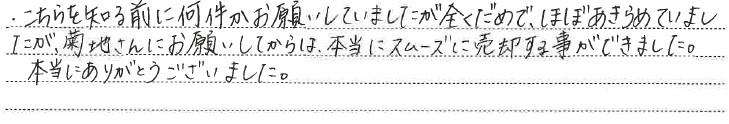 ・こちらを知る前に何件かお願いしていましたが全くだめで、ほぼあきらめていまし
たが、菊地さんにお願いしてからは、本当にスムーズに売却する事ができました。
本当にありがとうございました。